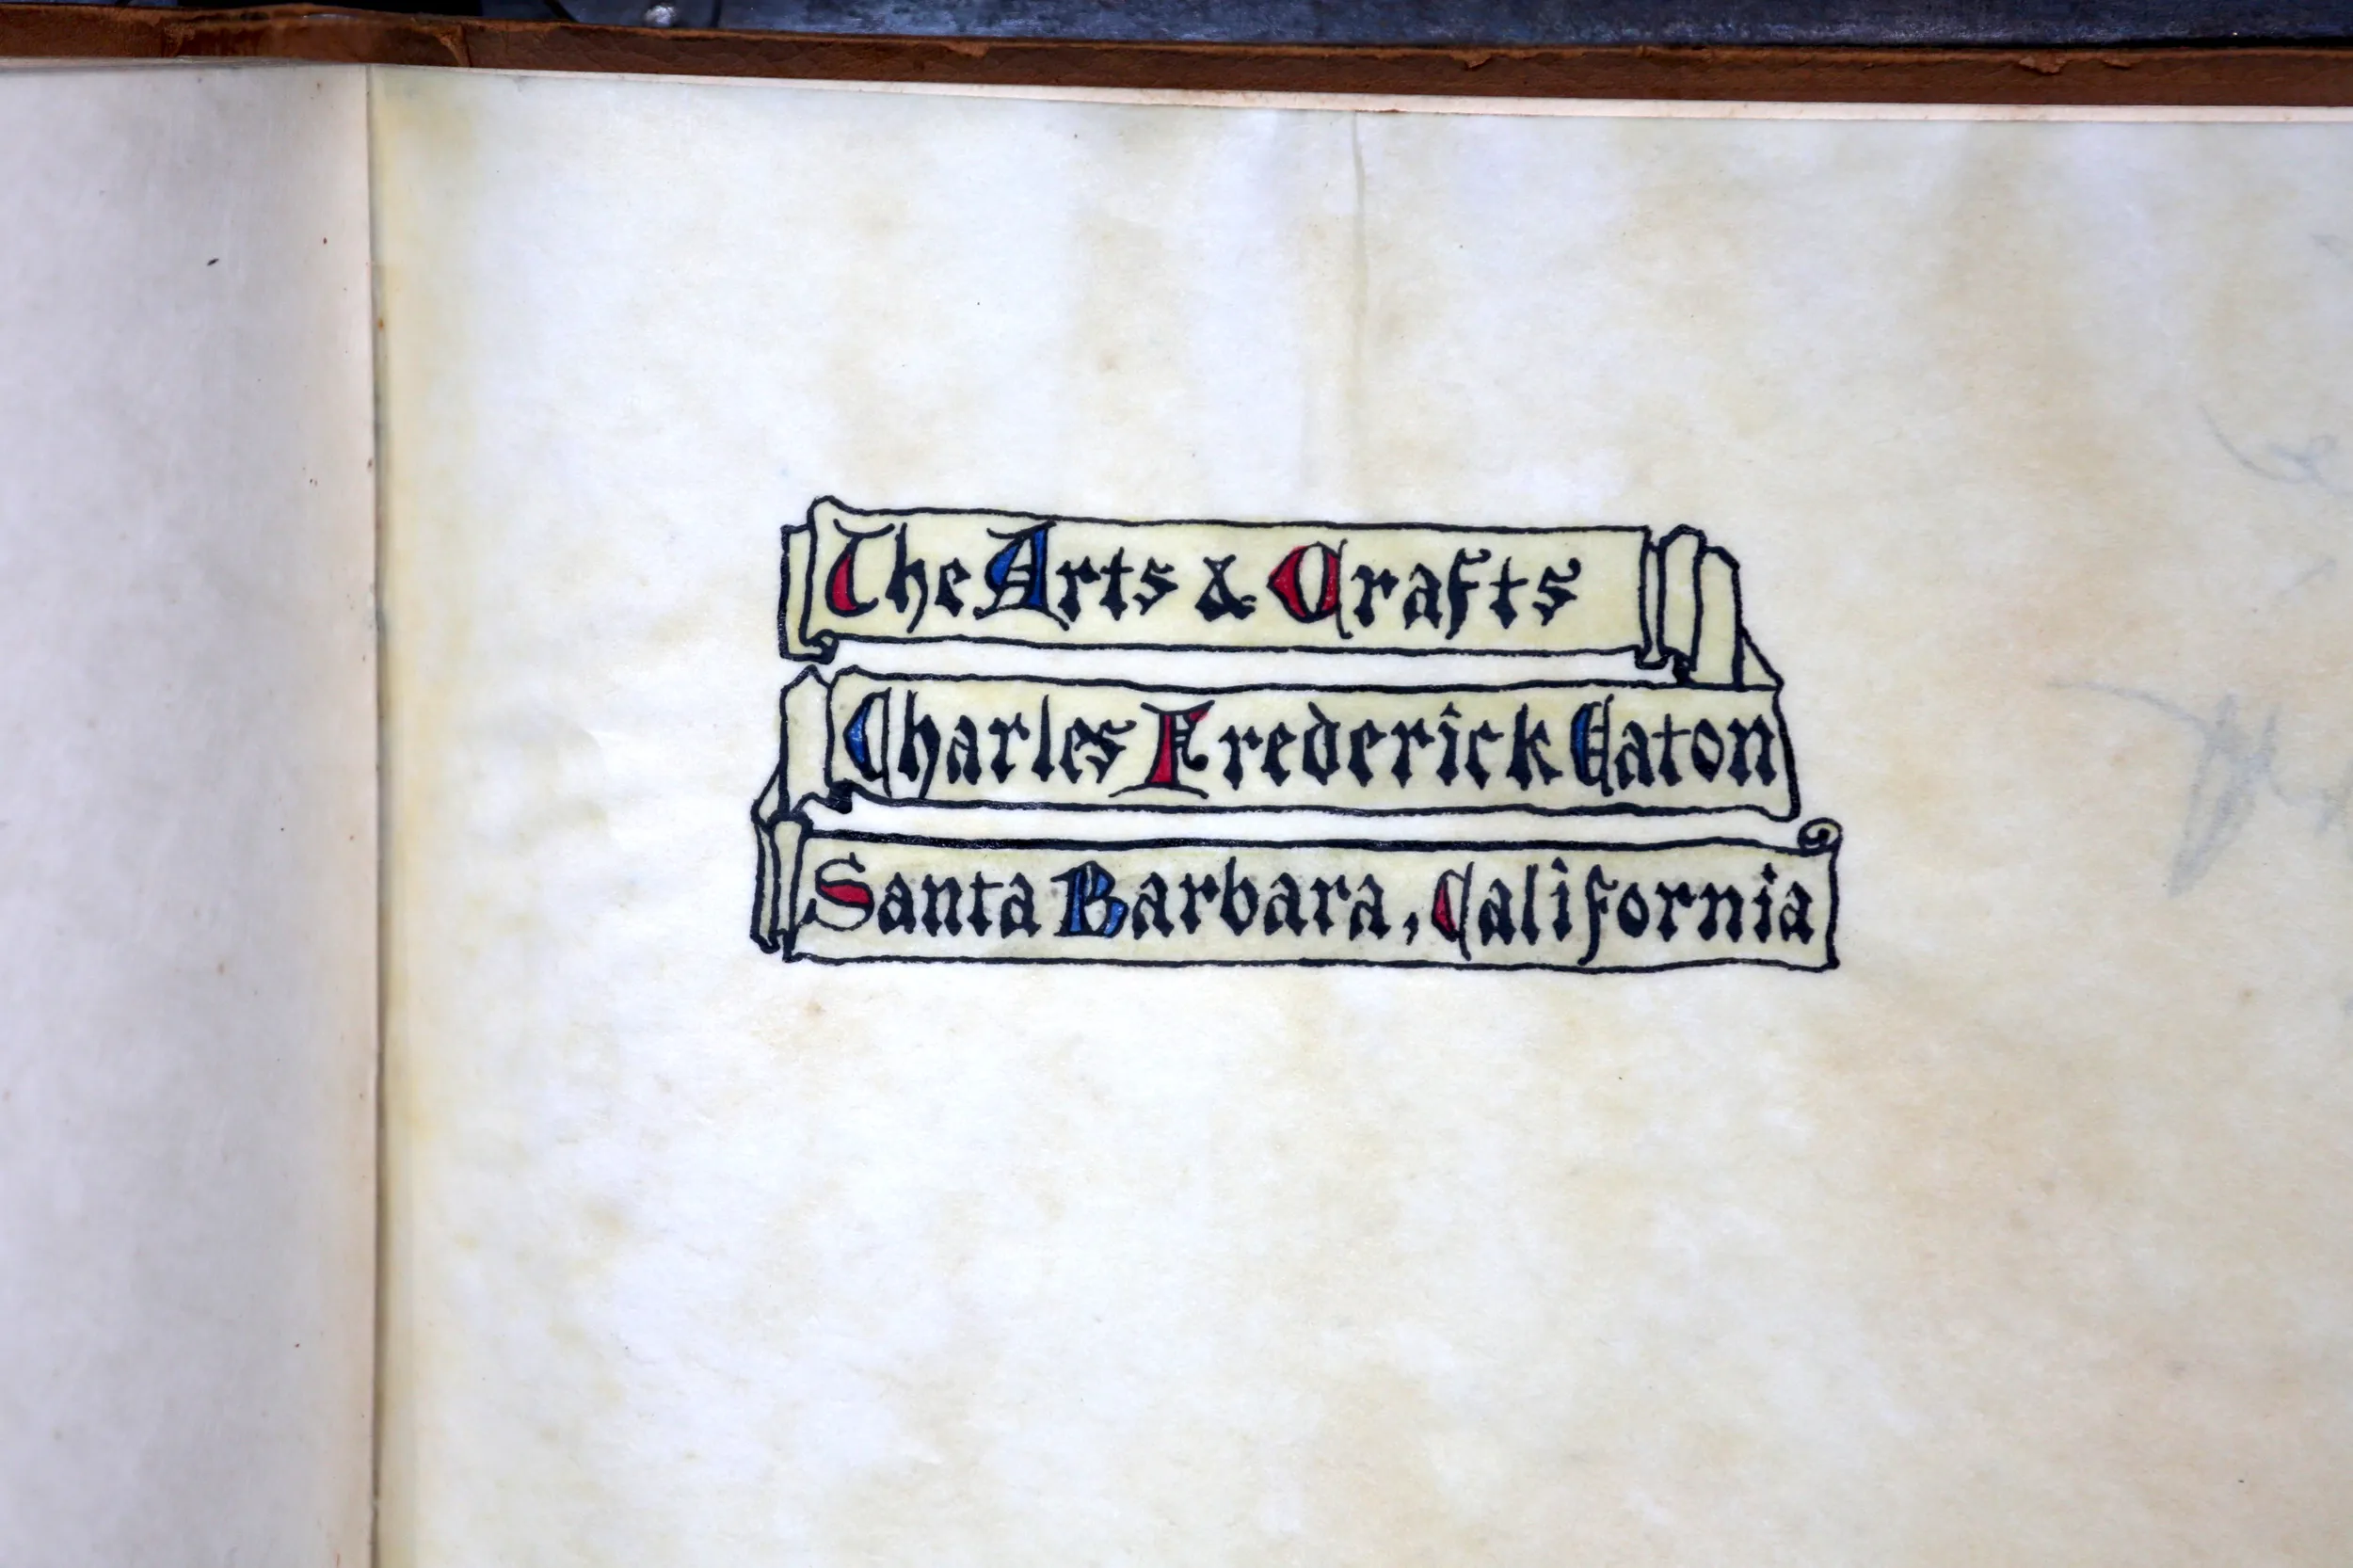 The Arts & Crafts
Charles Frederick Eaton
Santa Barbara, California